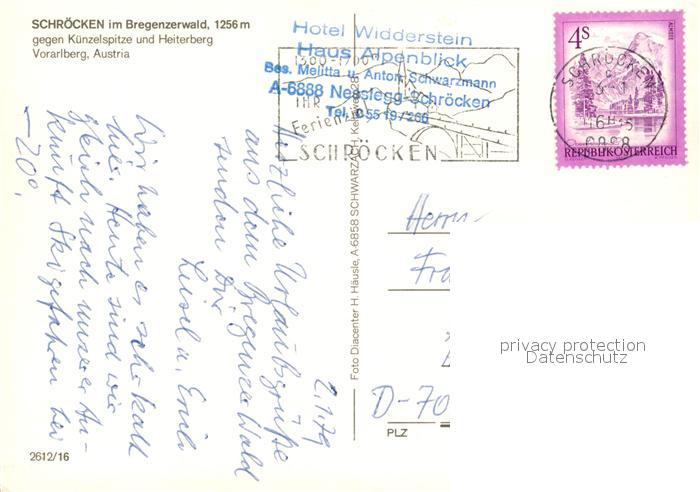 SCHRÖCKEN im Bregenzerwald, 1256 m
gegen Künzelspitze und Heiterberg
Vorarlberg, Austria
Hotel Widderstein
Haus Alpenblick
Bes. Melitta u. Anton Schwarzmann
A-6888 Nesslegg-Schröcken
Tel. 05519/266
1300-1700
IHR
Ferien
SCHRÖCKEN
4S
SCHRÖCKEN
REPUBLIK ÖSTERREICH
2.1.79
Herzliche Urlaubsgrüße
aus dem Bregenzer Wald
senden Dir
Luise u. Erich
Wir haben es sehr kalt
hier. Heute sind wir
gleich nach unserer An-
kunft Ski gefahren bei
-20°.
Foto Diacenter H. Häusle, A-6858 SCHWARZACH
Herrn
D-70
PLZ
privacy protection
Datenschutz
2612/16